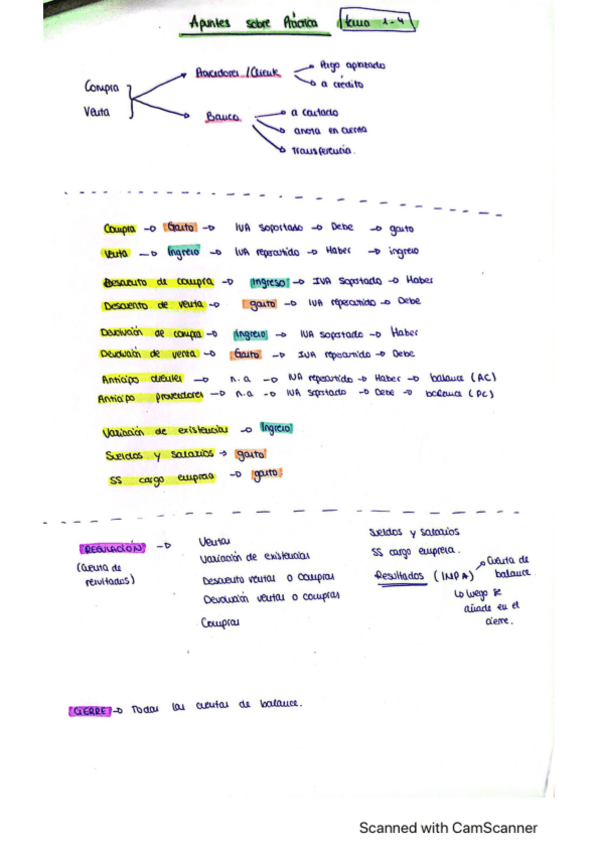 Apuntes sobre Práctica tema 1-4
Compra
Venta
Proveedores / Cliente
Pago aplazado
a crédito
Banco
a contado
anota en cuenta
transferencia.
Compra → Gasto → IVA soportado → Debe → gasto
Venta → Ingreso → IVA repercutido → Haber → ingreso
Descuento de compra → Ingreso → IVA soportado → Haber
Descuento de venta → gasto → IVA repercutido → Debe
Devolución de compra → Ingreso → IVA soportado → Haber
Devolución de venta → Gasto → IVA repercutido → Debe
Anticipo clientes → n.a → IVA repercutido → Haber → balance (AC)
Anticipo proveedores → n.a → IVA soportado → Debe → balance (PC)
Variación de existencias → Ingreso
Sueldos y salarios → gasto
SS cargo empresa → gasto
REGULACIÓN →
(Cuenta de
resultados)
Ventas
Variación de existencias
Descuento ventas o compras
Devolución ventas o compras
Compras
Sueldos y salarios
SS cargo empresa.
Resultados (INPA) → Cuenta de
balance
↳ luego se
añade en el
cierre.
CIERRE → Todas las cuentas de balance.
Scanned with CamScanner